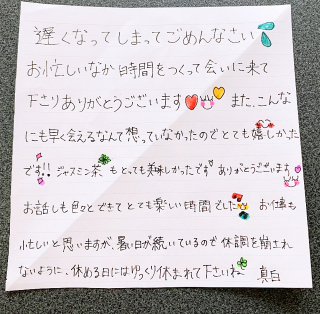 遅くなってしまってごめんなさい
お忙しいなか時間をつくって会いに来て
下さりありがとうございます また、こんな
にも早く会えるなんて想っていなかったのでとても嬉しかった
です!! ジャスミン茶もとっても美味しかったです ありがとうございます
お話しも色々とできてとても楽しい時間でした お仕事も
忙しいと思いますが、暑い日が続いているので体調を崩され
ないように、休める日にはゆっくり休まれて下さいね 真白